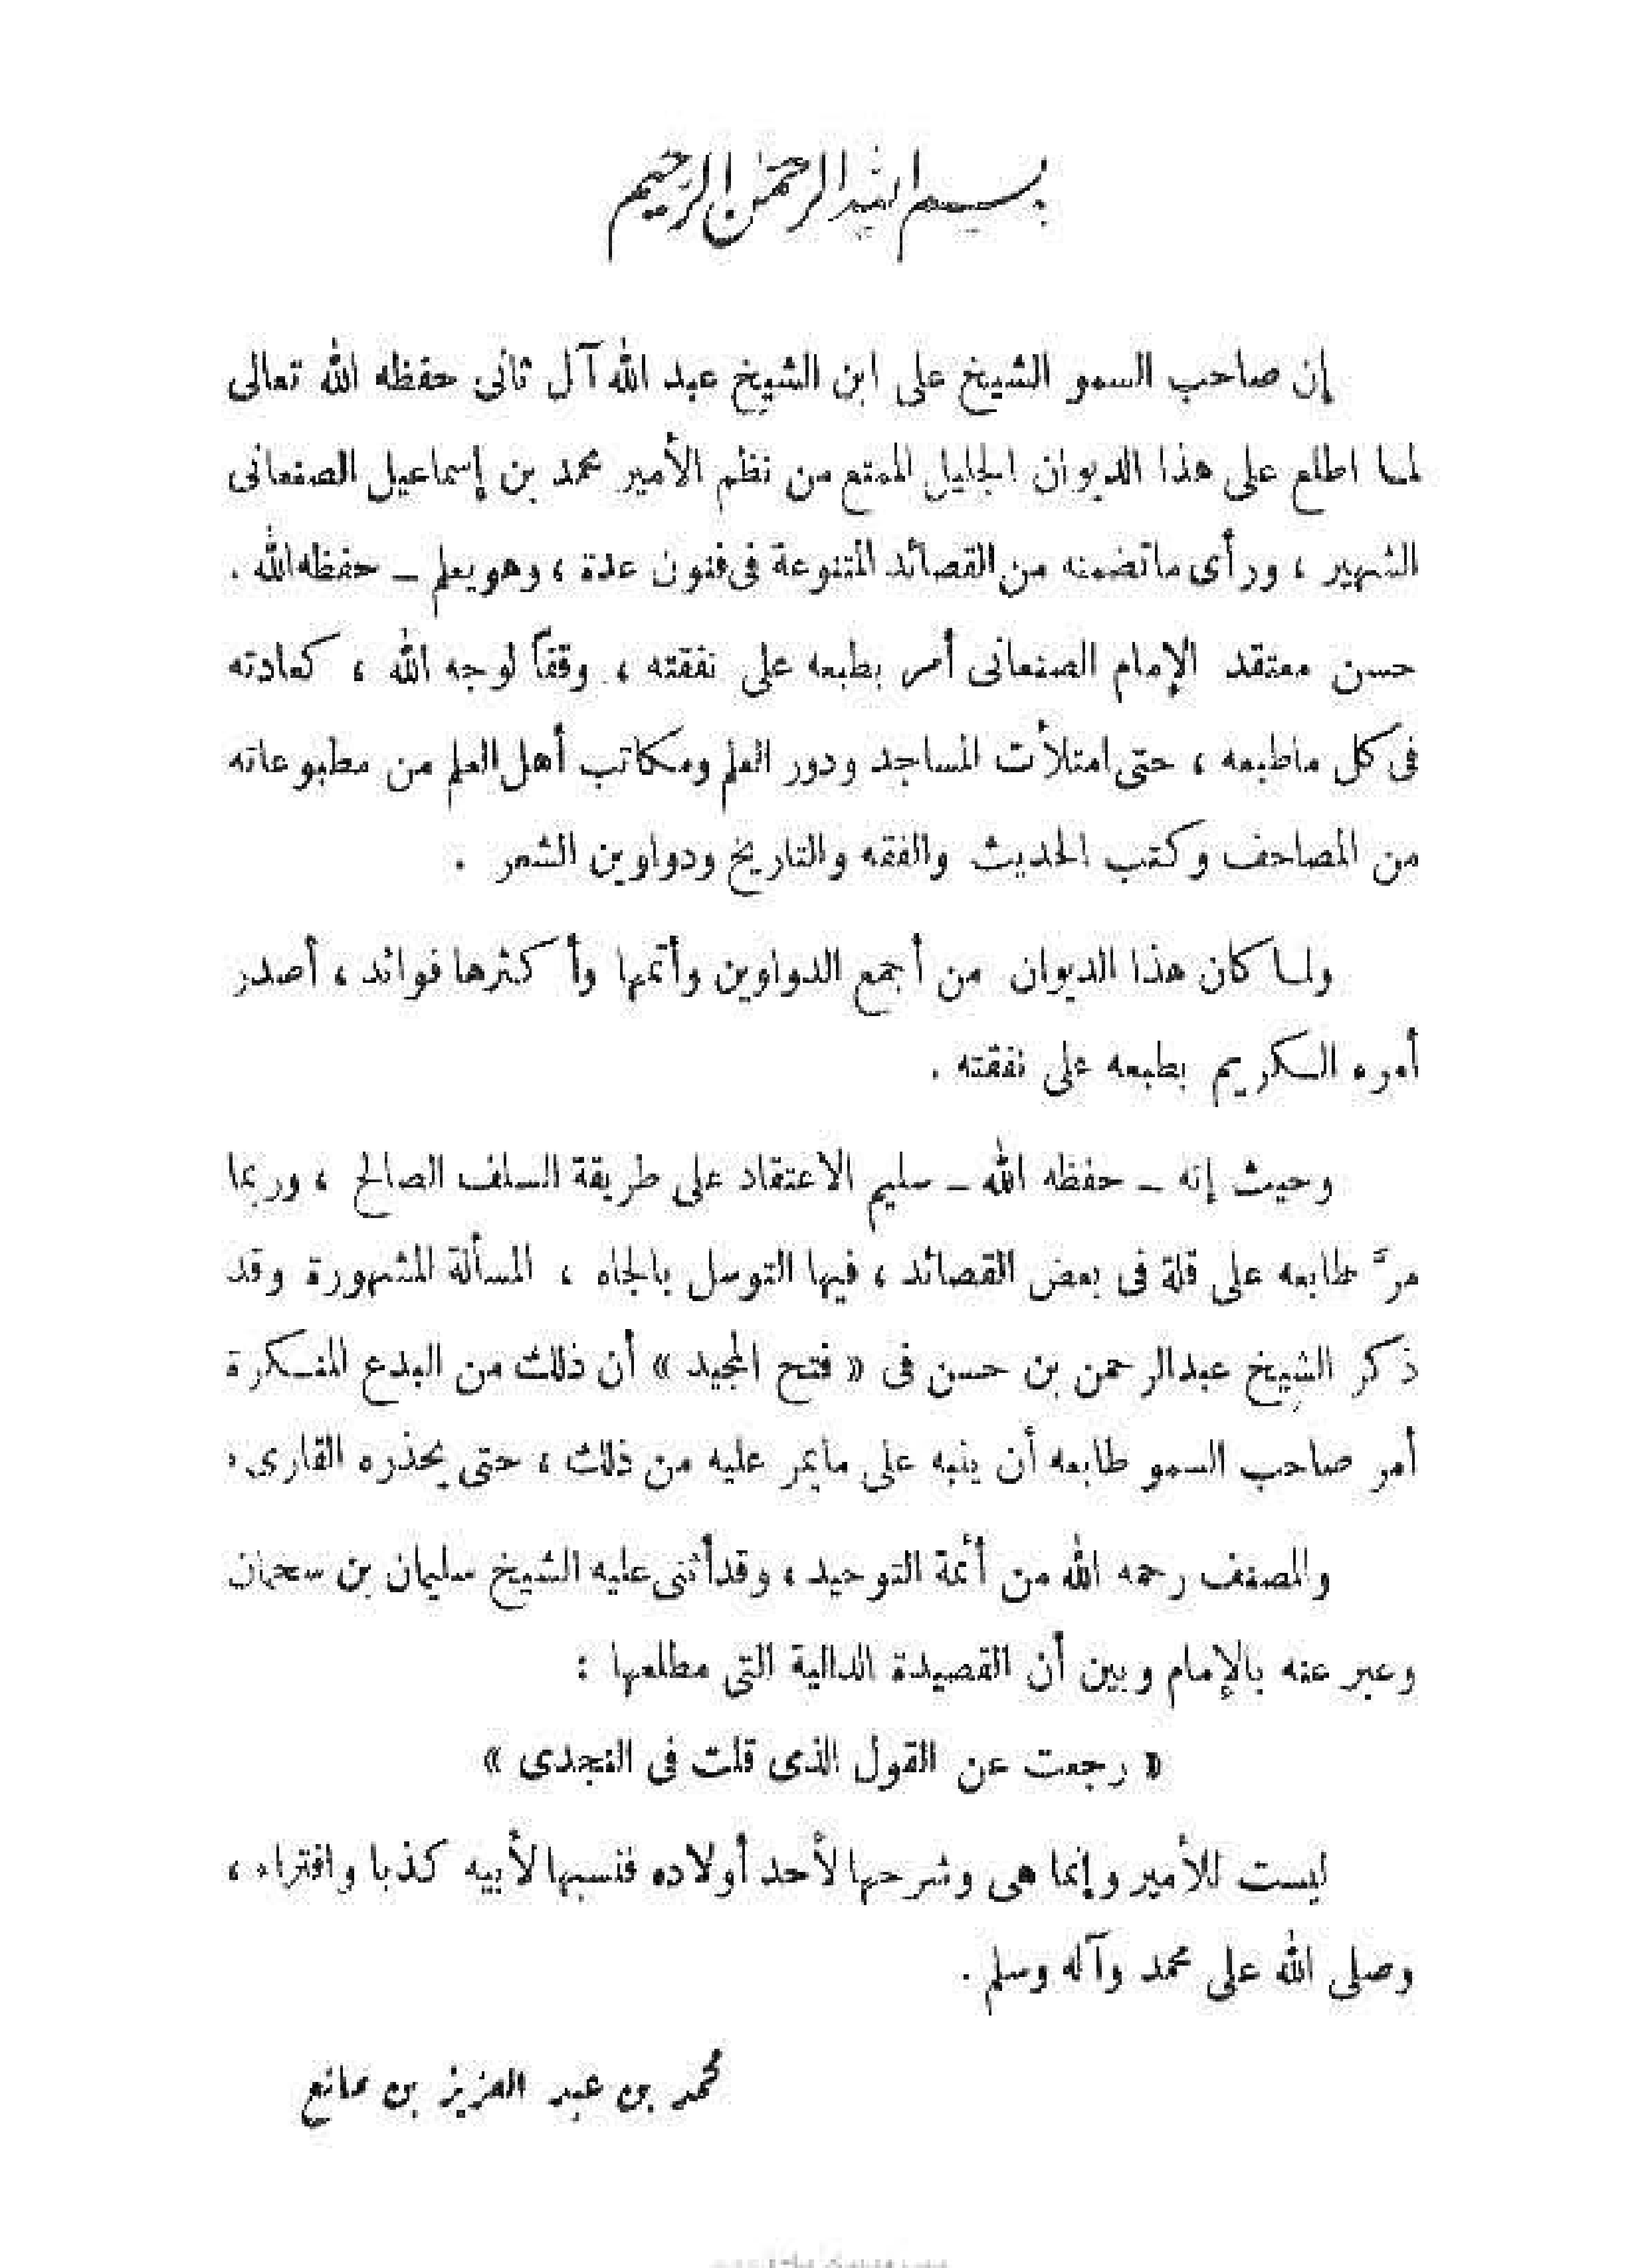 بسم الله الرحمن الرحيم
إن صاحب السمو الشيخ على ابن الشيخ عبد الله آل ثانى حفظه الله تعالى
لما اطلع على هذا الديوان الجليل الممتع من نظم الأمير محمد بن إسماعيل الصنعانى
الشهير ، ورأى ماتضمنه من القصائد المتنوعة فى فنون عدة ، وهو يعلم ــ حفظه الله .
حسن معتقد الإمام الصنعانى أمر بطبعه على نفقته ، وقفاً لوجه الله ، كعادته
فى كل ماطبعه ، حتى امتلأت المساجد ودور العلم ومكاتب أهل العلم من مطبوعاته
من المصاحف وكتب الحديث والفقه والتاريخ ودواوين الشعر .
ولما كان هذا الديوان من أجمع الدواوين وأتمها وأكثرها فوائد ، أصدر
أمره الكريم بطبعه على نفقته .
وحيث إنه ــ حفظه الله ــ سليم الاعتقاد على طريقة السلف الصالح ، وربما
مرَّ طابعه على قلة فى بعض القصائد ، فيها التوسل بالجاه ، المسألة المشهورة وقد
ذكر الشيخ عبدالرحمن بن حسن فى « فتح المجيد » أن ذلك من البدع المنكرة
أمر صاحب السمو طابعه أن ينبه على مايمر عليه من ذلك ، حتى يحذره القارىء
والمصنف رحمه الله من أئمة التوحيد ، وقد أثنى عليه الشيخ سليمان بن سحمان
وعبر عنه بالإمام وبين أن القصيدة الدالية التى مطلعها :
« رجعت عن القول الذى قلت فى النجدى »
ليست للأمير وإنما هى وشرحها لأحد أولاده فنسبها لأبيه كذبا وافتراء ،
وصلى الله على محمد وآله وسلم .
محمد بن عبد العزيز بن مانع